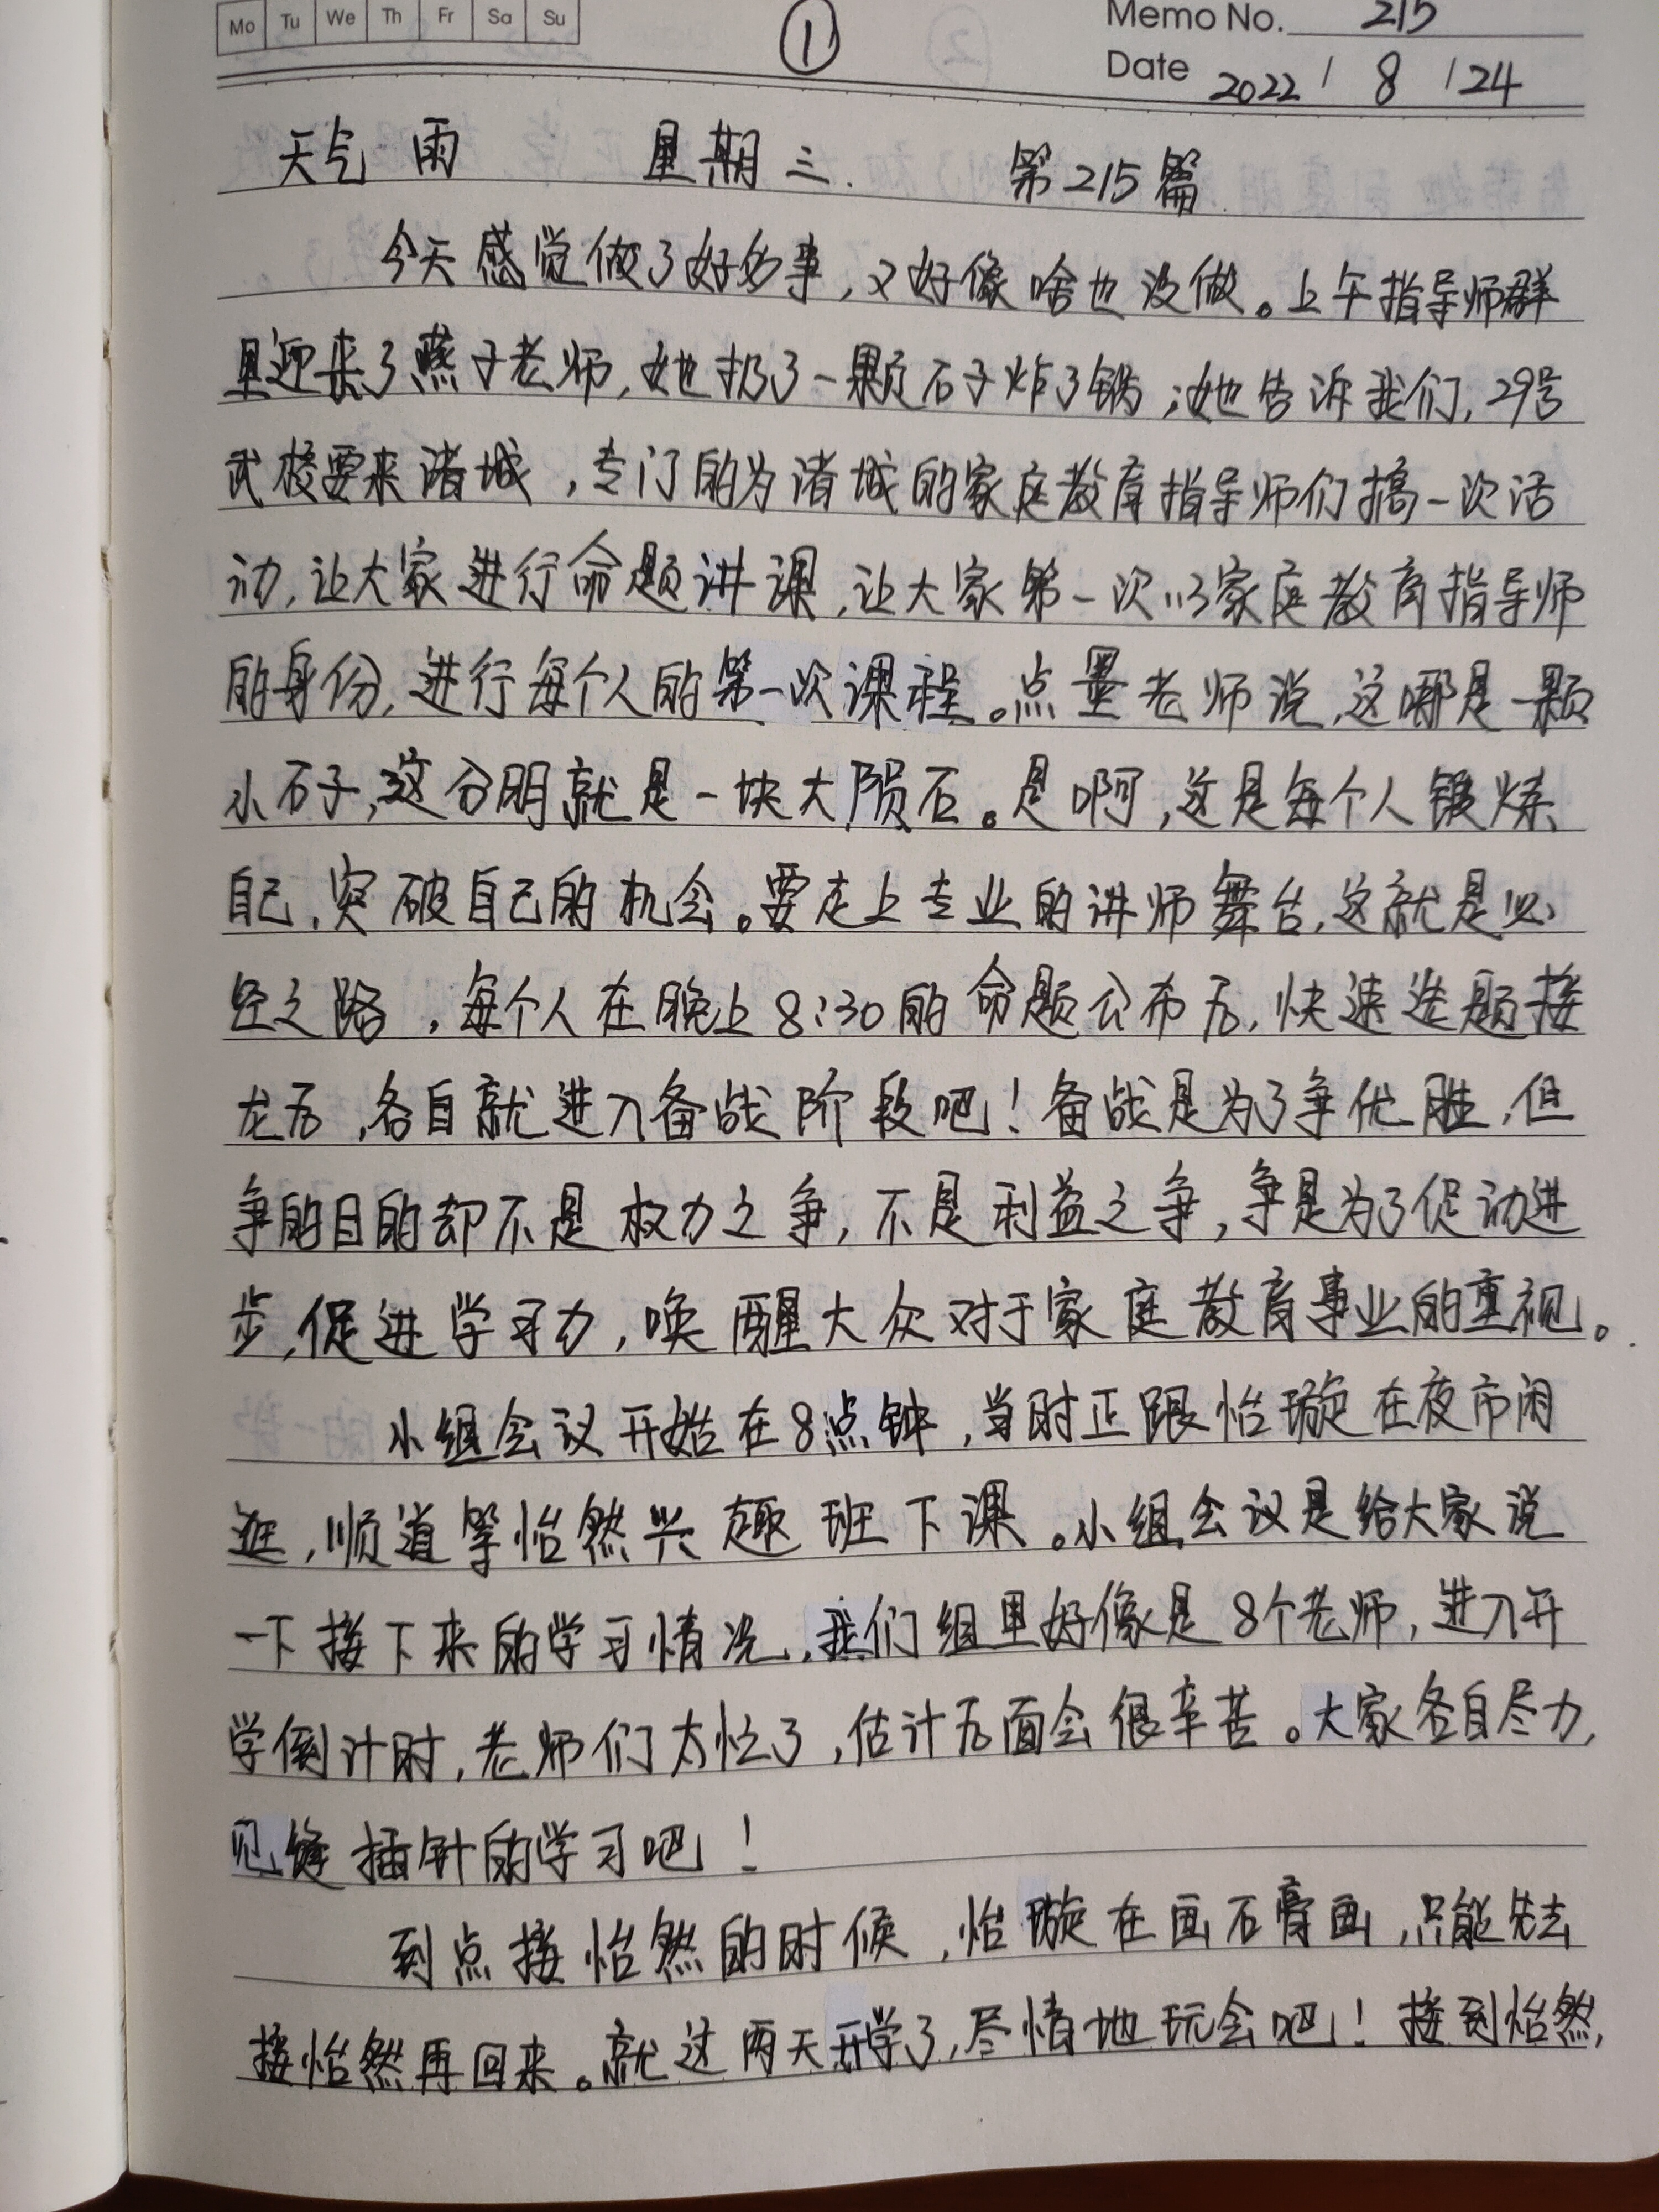 Mo Tu We Th Fr Sa Su
①
Memo No. 215
Date 2022 / 8 / 24
天气 雨 星期三. 第215篇
今天感觉做了好多事,又好像啥也没做。上午指导师群
里迎来了燕子老师,她扔了一颗石子炸了锅;她告诉我们,29号
武校要来诸城,专门的为诸城的家庭教育指导师们搞一次活
动,让大家进行命题讲课,让大家第一次以家庭教育指导师
的身份,进行每个人的第一次课程。点墨老师说,这哪是一颗
小石子,这分明就是一块大陨石。是啊,这是每个人锻炼
自己,突破自己的机会。要走上专业的讲师舞台,这就是必
经之路,每个人在晚上8:30的命题公布后,快速选题接
龙后,各自就进入备战阶段吧!备战是为了争优胜,但
争的目的却不是权力之争,不是利益之争,争是为了促动进
步,促进学习力,唤醒大众对于家庭教育事业的重视。
小组会议开始在8点钟,当时正跟怡璇在夜市闲
逛,顺道等怡然兴趣班下课。小组会议是给大家说
一下接下来的学习情况,我们组里好像是8个老师,进入开
学倒计时,老师们太忙了,估计后面会很辛苦。大家各自尽力,
见缝插针的学习吧!
到点接怡然的时候,怡璇在画石膏画,只能先去
接怡然再回来。就这两天开学了,尽情地玩会吧!接到怡然,